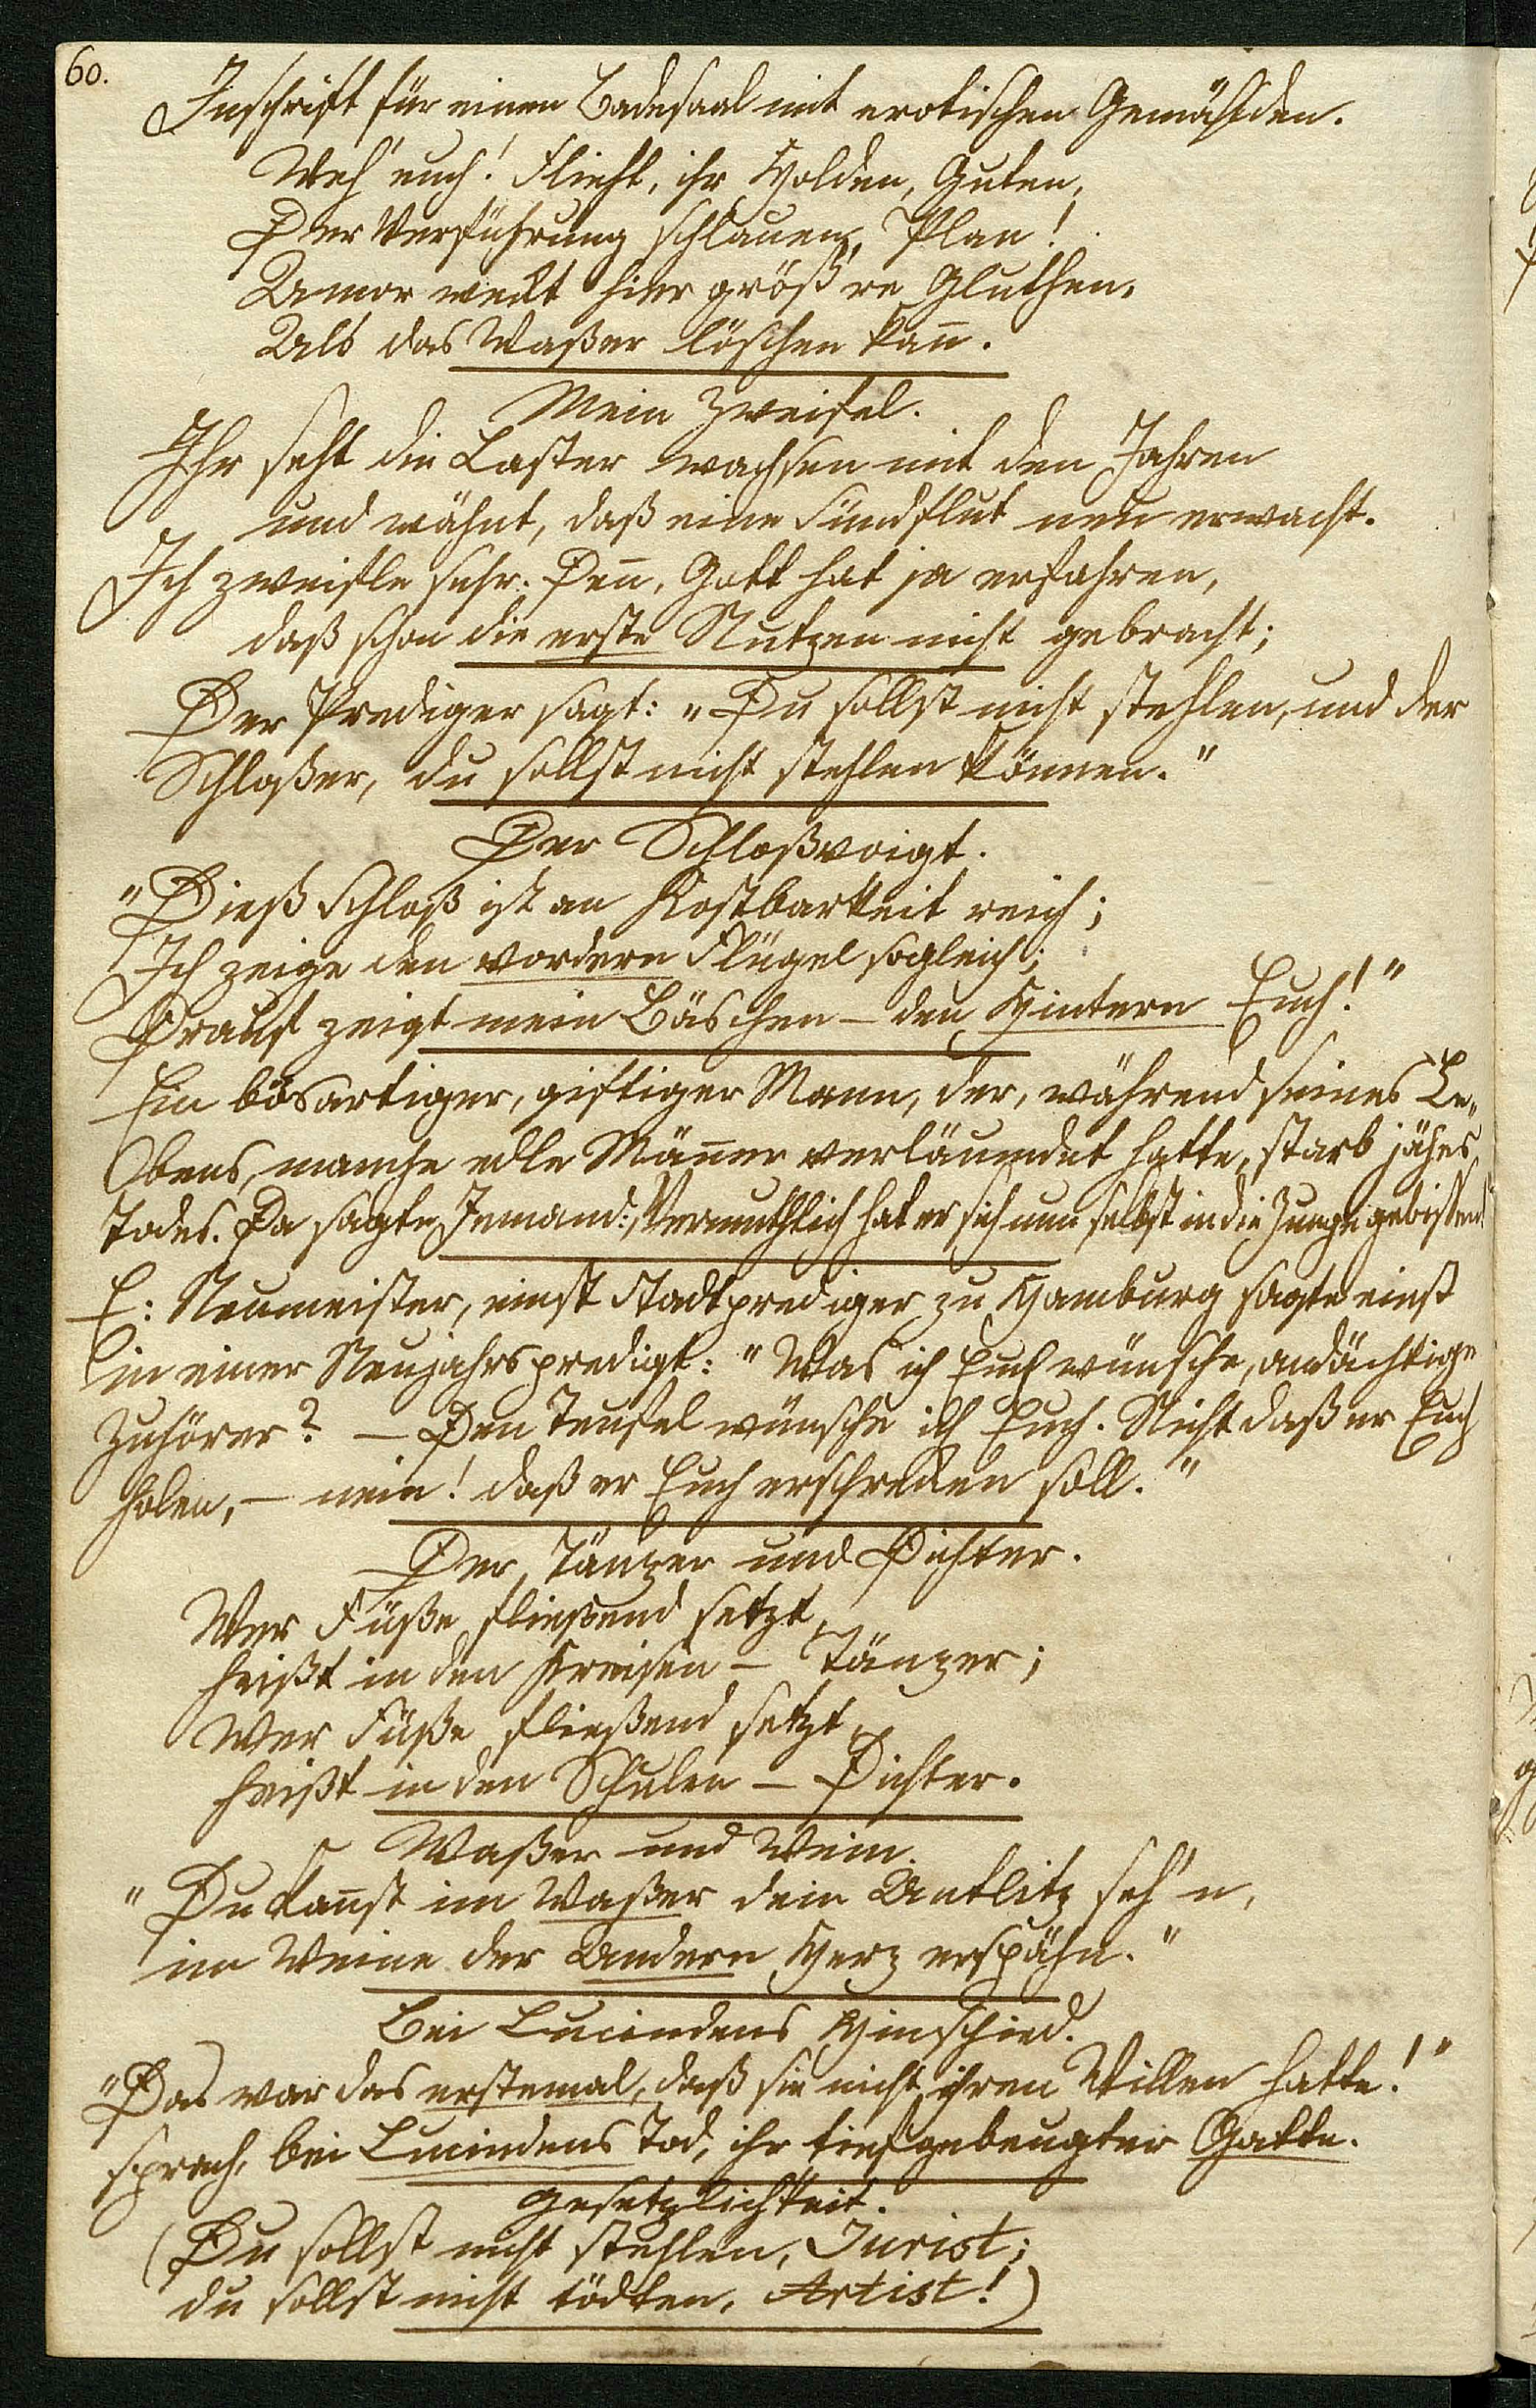 60.
Inschrift für einen Badesaal mit erotischen Gemählden.
Weh' euch! Flieht, ihr Holden, Guten,
Der Verführung schlauen Plan!
Amor weckt hier größ're Gluthen,
Als das Waßer löschen kan̅.
Mein Zweifel.
Ihr seht die Laster wachsen mit den Jahren
und wähnt, daß eine Sündflut neu erwacht.
Ich zweifle sehr: Den̅, Gott hat ja erfahren,
daß schon die erste Nutzen nicht gebracht;
Der Prediger sagt: "Du sollst nicht stehlen, und der
Schloßer, du sollst nicht stehlen können."
Der Schloßvoigt.
"Dieß Schloß ist an Kostbarkeit reich;
Ich zeige den vordern Flügel sogleich;
Drauf zeigt mein Bäschen – den Hintern Euch!"
Ein bösartiger, giftiger Mann, der, während seines Le„
bens, manche edle Män̅er verläumdet hatte, starb jähes
Todes. Da sagte Jemand: „Vermuthlich hat er sich nun selbst in die Zunge gebißen!"
E: Neumeister, einst Stadtprediger zu Hamburg sagte einst
in einer Neujahrspredigt: "Was ich Euch wünsche, andächtige
Zuhörer? – Den Teufel wünsche ich Euch. Nicht daß er Euch
holen, – nein! daß er Euch erschrecken soll."
Der Tänzer und Dichter.
Wer Füße fließend setzt,
heißt in den Kreisen – Tänzer;
Wer Füße fließend setzt,
heißt in den Schulen – Dichter.
Waßer und Wein.
"Du kan̅st im Waßer dein Antlitz seh'n,
im Weine der Andern Herz erspähn."
Bei Lucindens Hinschied.
"Das war das erstemal, daß sie nicht ihren Willen hatte!"
sprach, bei Lucindens Tod, ihr tiefgebeugter Gatte.
Gesetzlichkeit.
(Du sollst nicht stehlen, Jurist;
du sollst nicht tödten, Artist!)